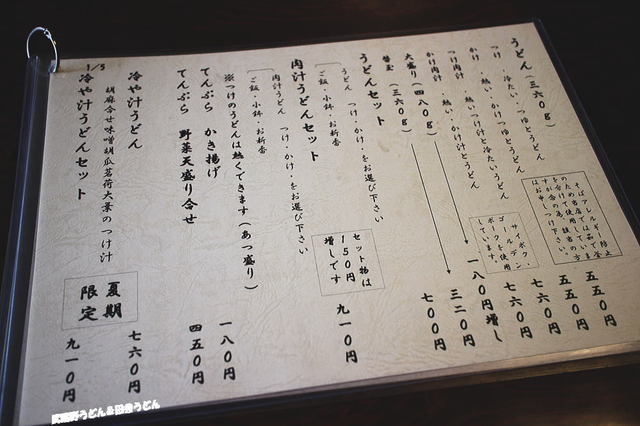 うどん（三六〇g）
つけ ・冷たい ・つゆとうどん 五五〇円
かけ ・熱い ・かけつゆとうどん 五五〇円
つけ肉汁 ・熱い ・つけ汁と冷たいうどん 七六〇円
かけ肉汁 ・熱い ・かけ汁とうどん 七六〇円
大盛り（四八〇g） 一八〇円増し
替玉（三六〇g） 三二〇円
七〇〇円
そばアレルギー防止
サイボク
ゴールデン
ポークを使用
しています。
うどんセット
うどん つけ・かけ・をお選び下さい
ご飯・小鉢・お新香
肉汁うどんセット 九一〇円
肉汁うどん つけ・かけ・をお選び下さい
ご飯・小鉢・お新香
セット物は
150円
増しです
※つけのうどんは熱くできます（あつ盛り）
てんぷら かき揚げ 一八〇円
てんぷら 野菜天盛り合せ 四五〇円
冷や汁うどん 七六〇円
胡麻合せ味噌胡瓜茗荷大葉のつけ汁
冷や汁うどんセット 九一〇円
夏期
限定
1/5
武蔵野うどん&田舎うどん